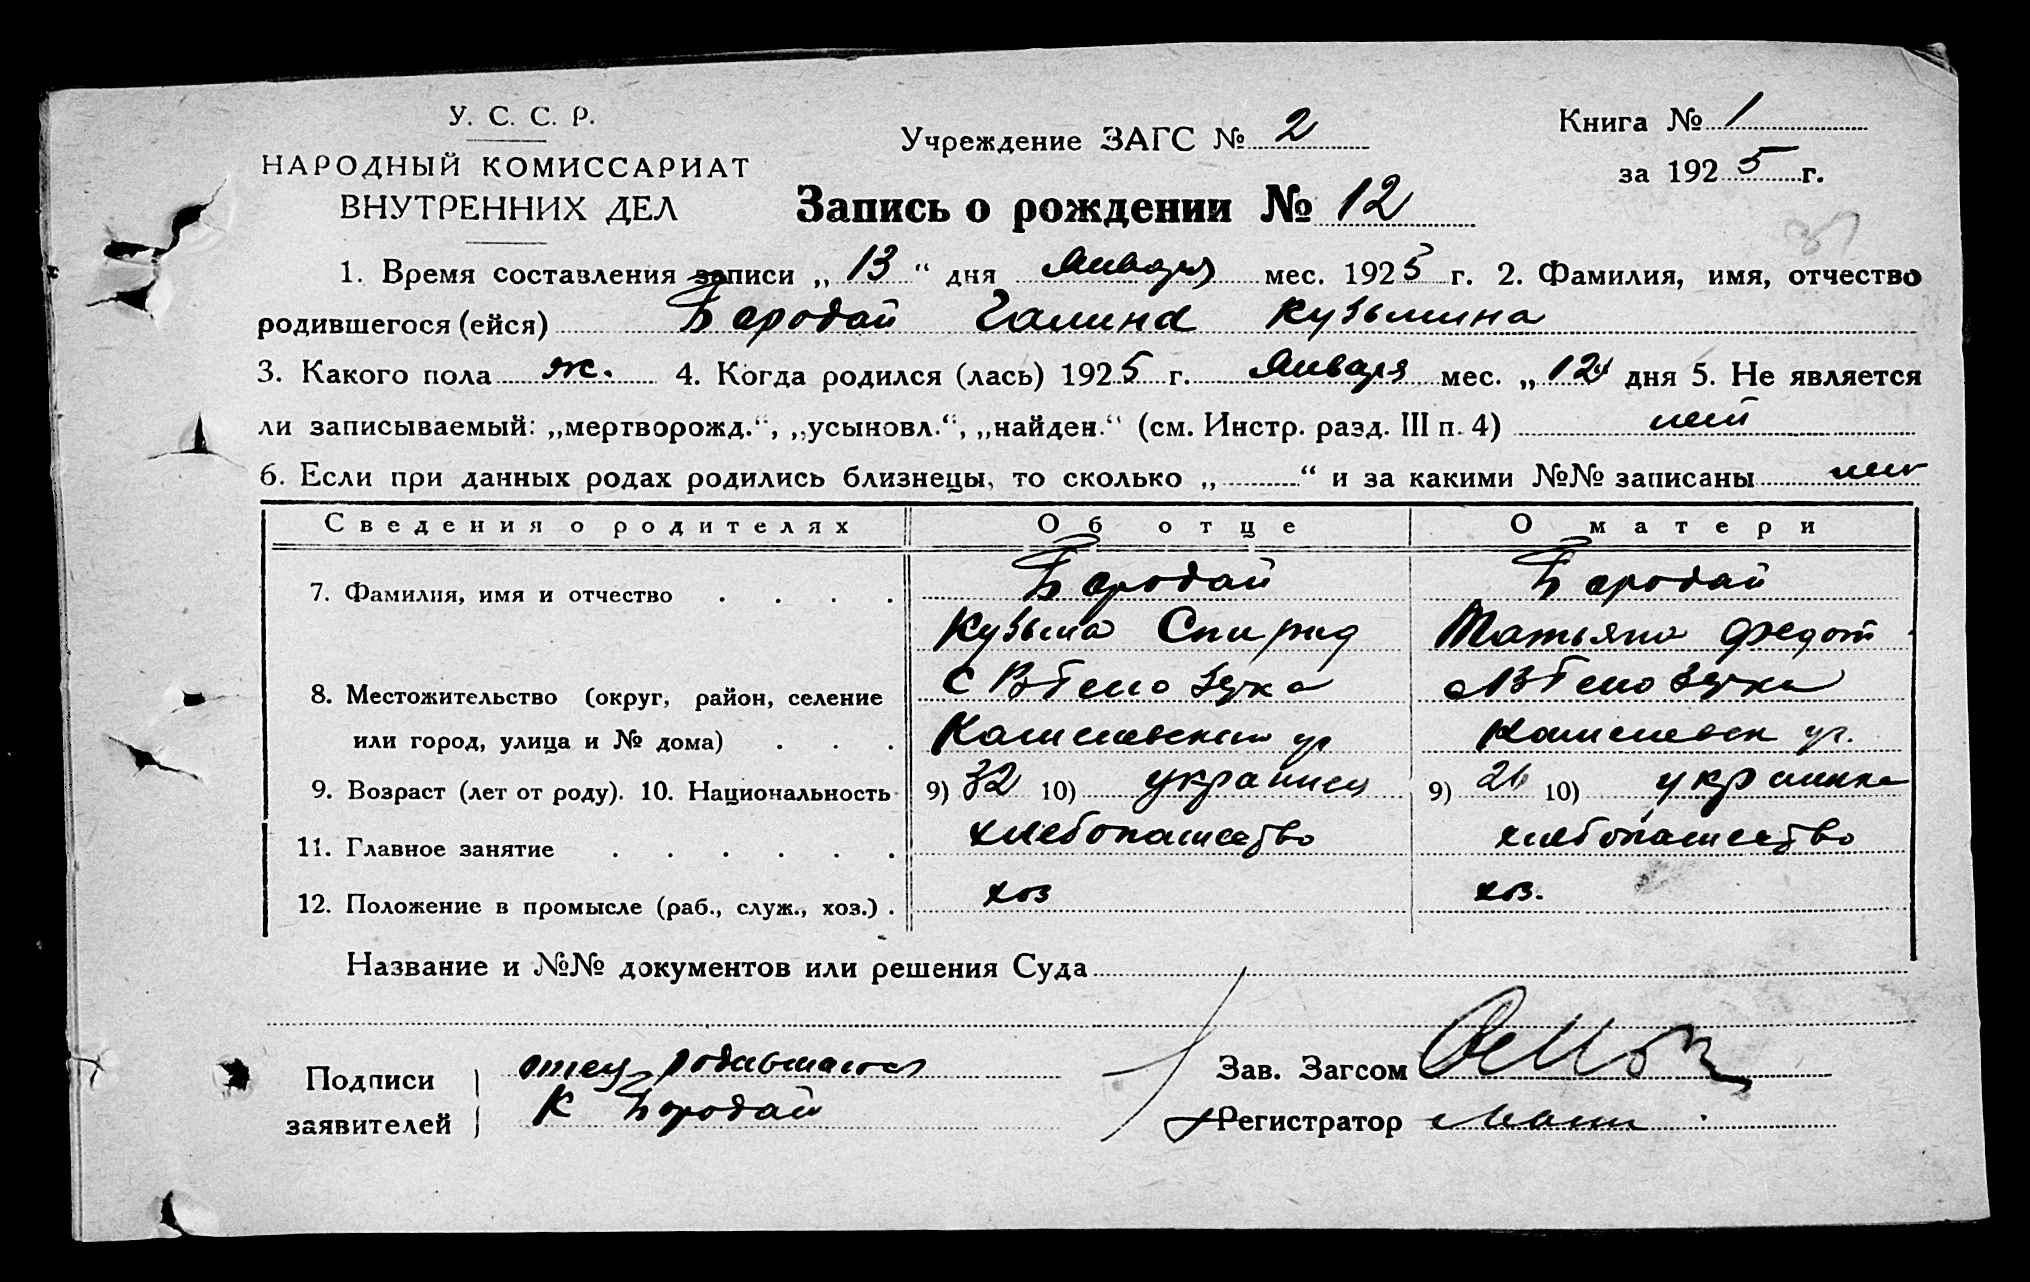 У. С. С. Р.
НАРОДНЫЙ КОМИССАРИАТ
ВНУТРЕННИХ ДЕЛ
Учреждение ЗАГС № 2
Книга № 1
за 1925 г.
Запись о рождении № 12
1. Время составления записи „ 13 “ дня Января мес. 1925 г. 2. Фамилия, имя, отчество
родившегося (ейся) Бородай Галина Кузьмина
3. Какого пола ж. 4. Когда родился (лась) 1925 г. Января мес. „ 12 “ дня 5. Не является
ли записываемый: „мертворожд.“, „усыновл.“, „найден.“ (см. Инстр. разд. III п. 4) нет
6. Если при данных родах родились близнецы, то сколько „ “ и за какими №№ записаны нет
Сведения о родителях Об отце О матери
7. Фамилия, имя и отчество Бородай Бородай
Кузьма Спирид Татьяна Федот
8. Местожительство (округ, район, селение
или город, улица и № дома)
9. Возраст (лет от роду). 10. Национальность 9) 32 10) украинец 9) 26 10) украинка
11. Главное занятие хлебопашество хлебопашество
12. Положение в промысле (раб., служ., хоз.) хоз хоз.
Название и №№ документов или решения Суда
Подписи отец
заявителей К Бородай
Зав. Загсом
Регистратор